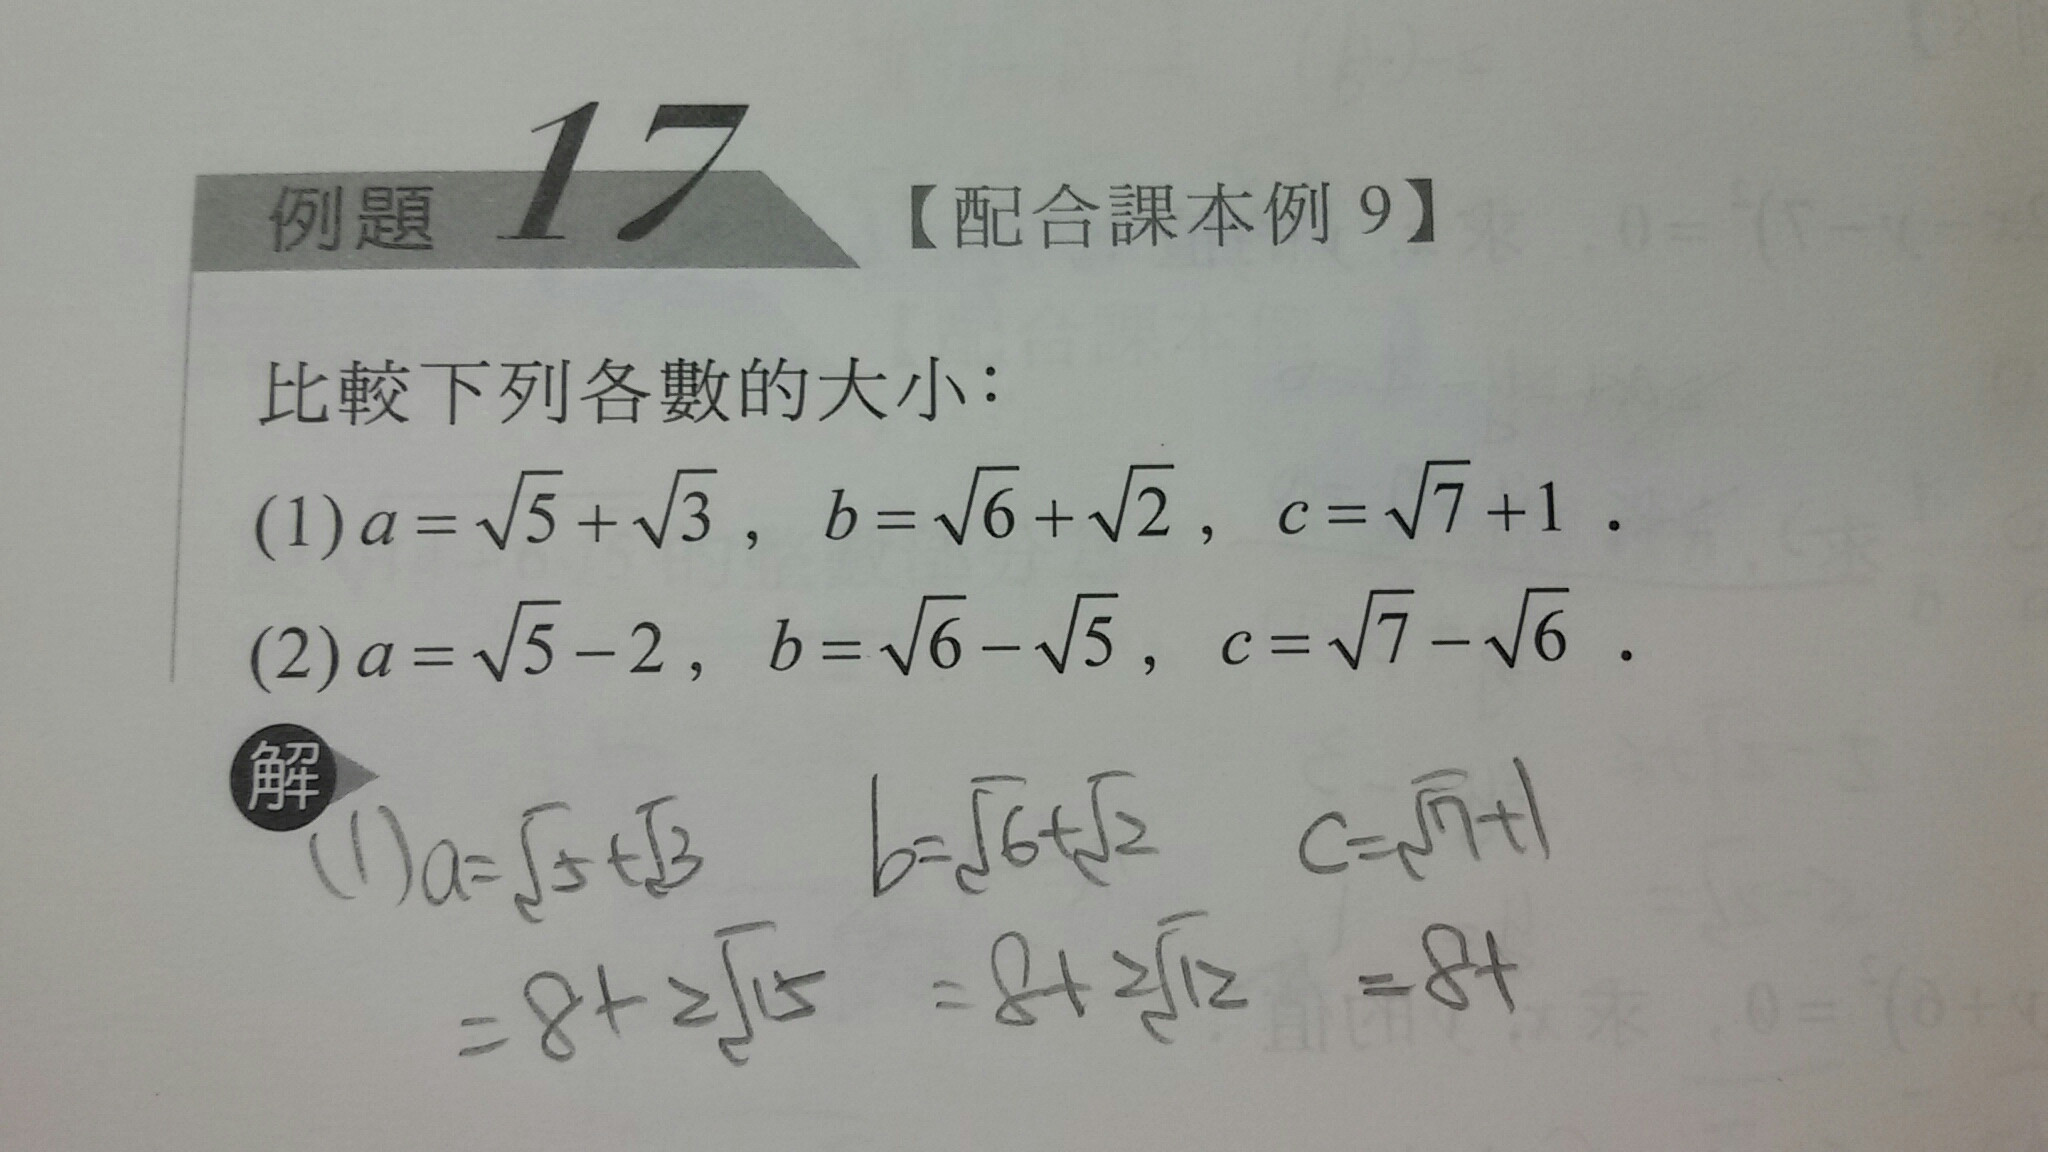 例題 17 【配合課本例 9】
比較下列各數的大小：
(1) a = √5 + √3 , b = √6 + √2 , c = √7 + 1 .
(2) a = √5 − 2 , b = √6 − √5 , c = √7 − √6 .
解
(1) a = √5 + √3 b = √6 + √2 c = √7 + 1
= 8 + 2√15 = 8 + 2√12 = 8 +